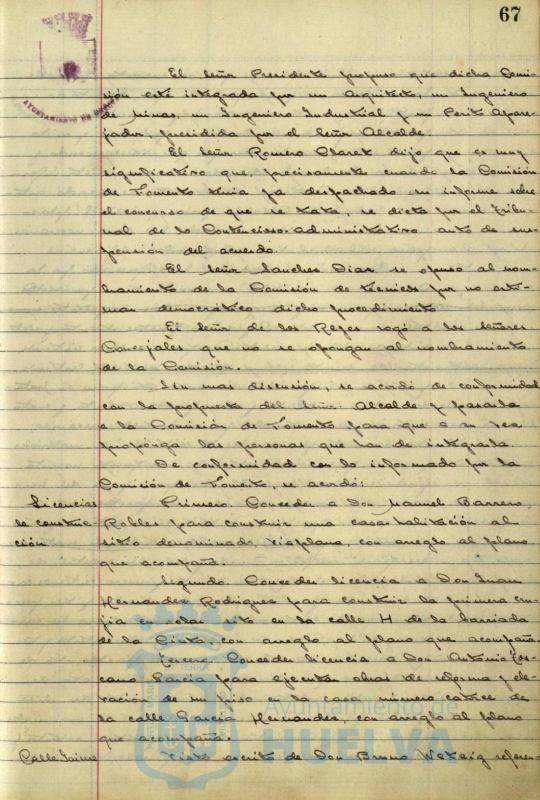 67
El Señor Presidente propuso que dicha Comi-
sión esté integrada por un Arquitecto, un Ingeniero
de Minas, un Ingeniero Industrial y un Perito Apare-
jador, presidida por el Señor Alcalde.
El Señor Romero Claret dijo que es muy
significativo que, precisamente cuando la Comisión
de Fomento tenia ya despachado su informe sobre
el concurso de que se trata, se dicta por el Tribu-
nal de lo Contencioso-administrativo auto de sus-
pensión del acuerdo.
El Señor Sanchez Diaz se opuso al nom-
bramiento de la Comisión de tecnicos por no esti-
mar democrático dicho procedimiento
El Señor de los Reyes rogó a los señores
Concejales que no se opongan al nombramiento
de la Comisión.
Sin mas discusión, se acordó de conformidad
con la propuesta del Señor Alcalde y pasarla
a la Comisión de Fomento para que a su vez
proponga las personas que han de integrarla.
De conformidad con lo informado por la
Comisión de Fomento, se acordó:
Licencias
de construc-
ción
Primero. Conceder a Don Manuel Barrero
Robles para construir una casa habitación al
sitio denominado, Viaplana, con arreglo al plano
que acompaña.
Segundo. Conceder licencia a Don Juan
Hernandez Rodriguez para construir la primera cru-
jia en solar sito en la calle H de la barriada
de la Cinta, con arreglo al plano que acompaña.
Tercero. Conceder licencia a Don Antonio Tos-
cano Garcia para ejecutar obras de reforma y ele-
vación de un piso en la casa numero catorce de
la calle Garcia Hernandez, con arreglo al plano
que acompaña.
Calle Jaime
Visto escrito de Don Bruno Wetzig referen-
AYUNTAMIENTO DE HUELVA
Ayuntamiento de
HUELVA